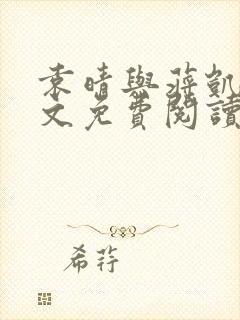 袁晴與蔣凱
文免費閱讀
希荇